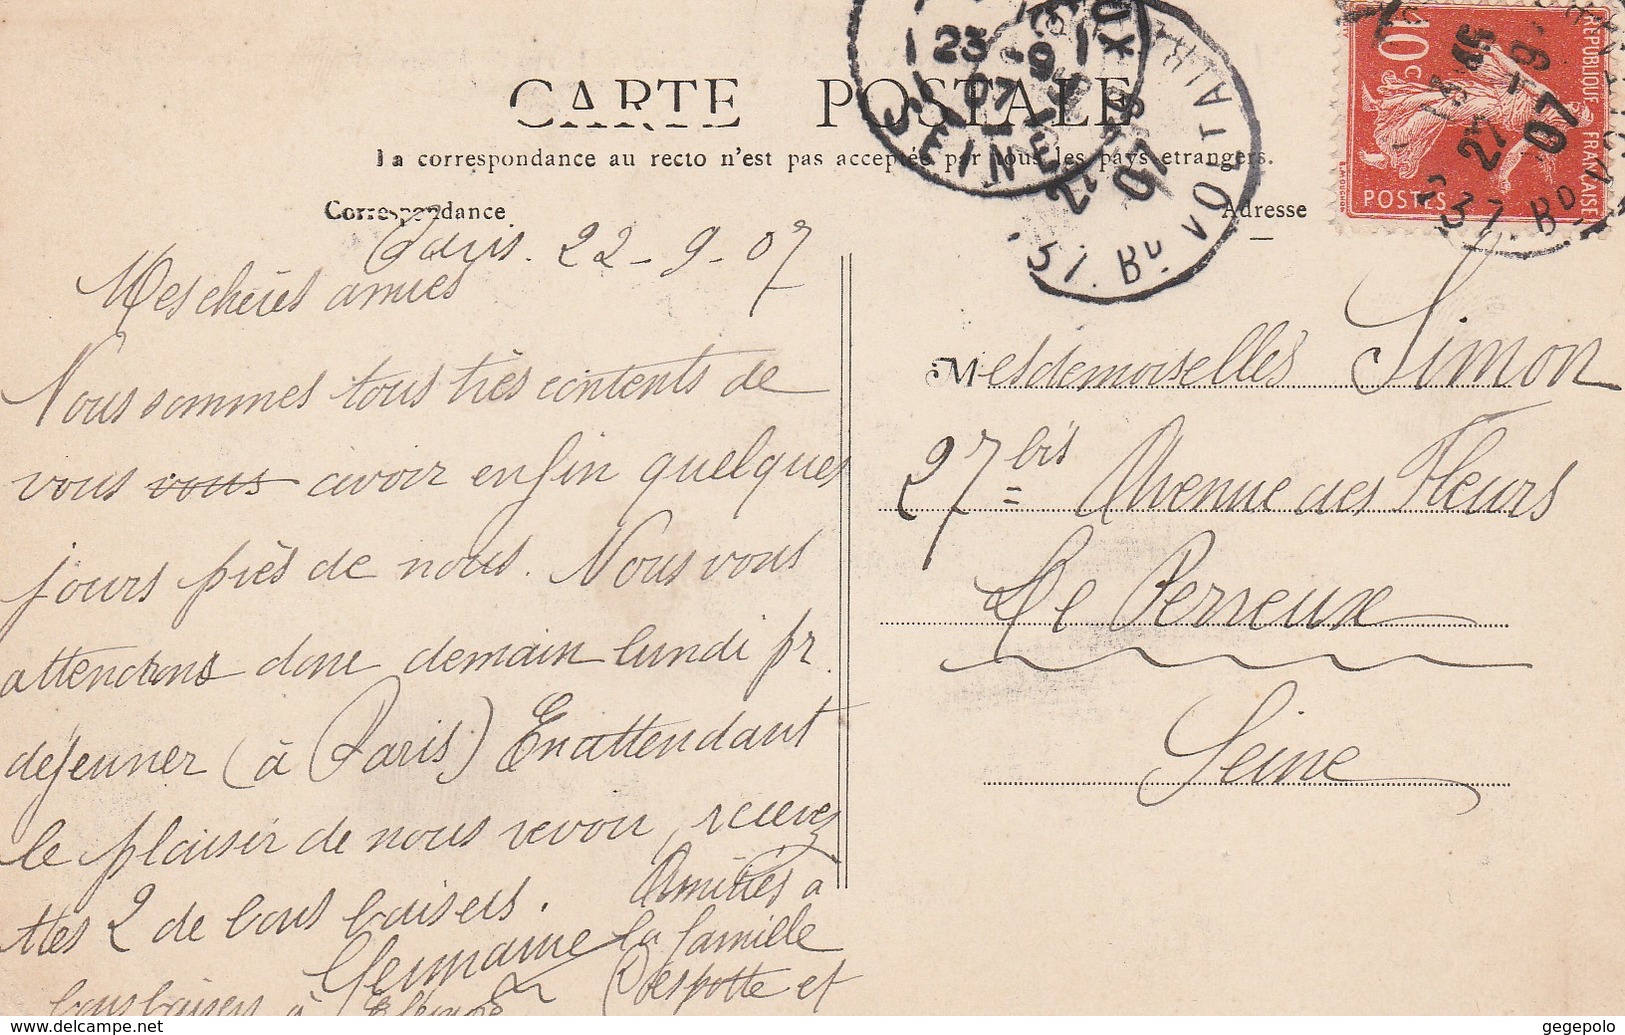 CARTE POSTALE
La correspondance au recto n'est pas acceptée par tous les pays etrangers.
Correspondance
Adresse
23 - 9
07
SEINE
07
51. Bd VOLTAIRE
RÉPUBLIQUE FRANÇAISE
10 c
POSTES
27 - 9
07
37. Bd
Paris. 22 - 9 - 07
Mes chères amies
Nous sommes tous très contents de
vous vous avoir enfin quelques
jours près de nous. Nous vous
attendons donc demain lundi pr.
déjeuner (à Paris) En attendant
le plaisir de nous revoir, recevez
ttes 2 de bons baisers. Amitiés à
Germaine la famille
Despotte et
bons baisers à
Mesdemoiselles Simon
27 bis Avenue des Fleurs
Le Perreux
Seine
www.delcampe.net
gegepolo